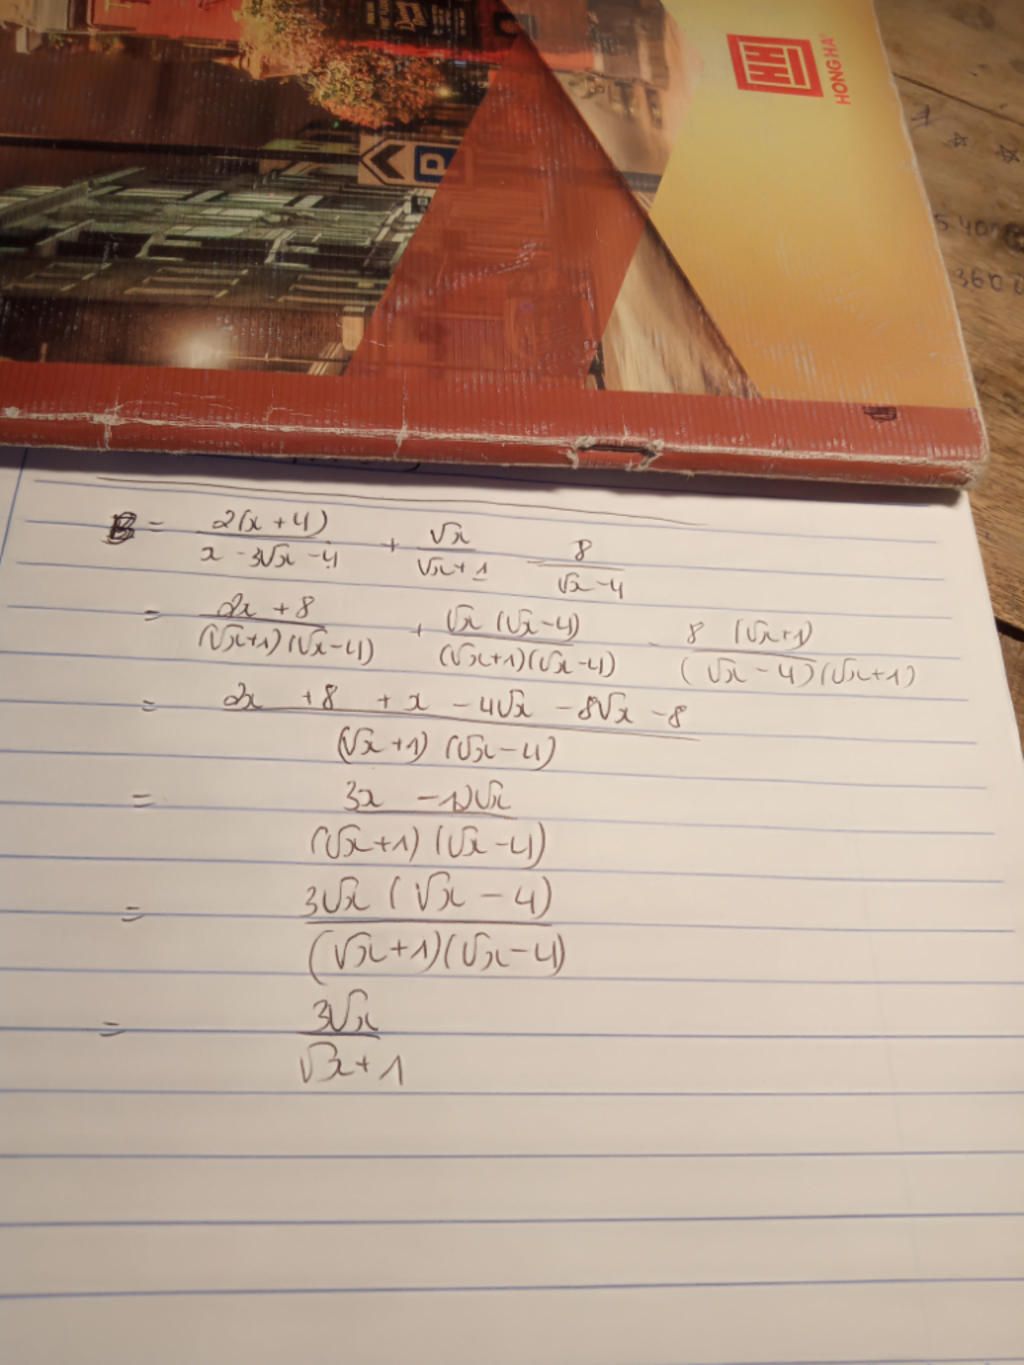 HH
HONG HA
P
5.40
360
B = \frac{2(x+4)}{x-3\sqrt{x}-4} + \frac{\sqrt{x}}{\sqrt{x}+1} - \frac{8}{\sqrt{x}-4}
= \frac{2x+8}{(\sqrt{x}+1)(\sqrt{x}-4)} + \frac{\sqrt{x}(\sqrt{x}-4)}{(\sqrt{x}+1)(\sqrt{x}-4)} - \frac{8(\sqrt{x}+1)}{(\sqrt{x}-4)(\sqrt{x}+1)}
= \frac{2x+8+x-4\sqrt{x}-8\sqrt{x}-8}{(\sqrt{x}+1)(\sqrt{x}-4)}
= \frac{3x-12\sqrt{x}}{(\sqrt{x}+1)(\sqrt{x}-4)}
= \frac{3\sqrt{x}(\sqrt{x}-4)}{(\sqrt{x}+1)(\sqrt{x}-4)}
= \frac{3\sqrt{x}}{\sqrt{x}+1}